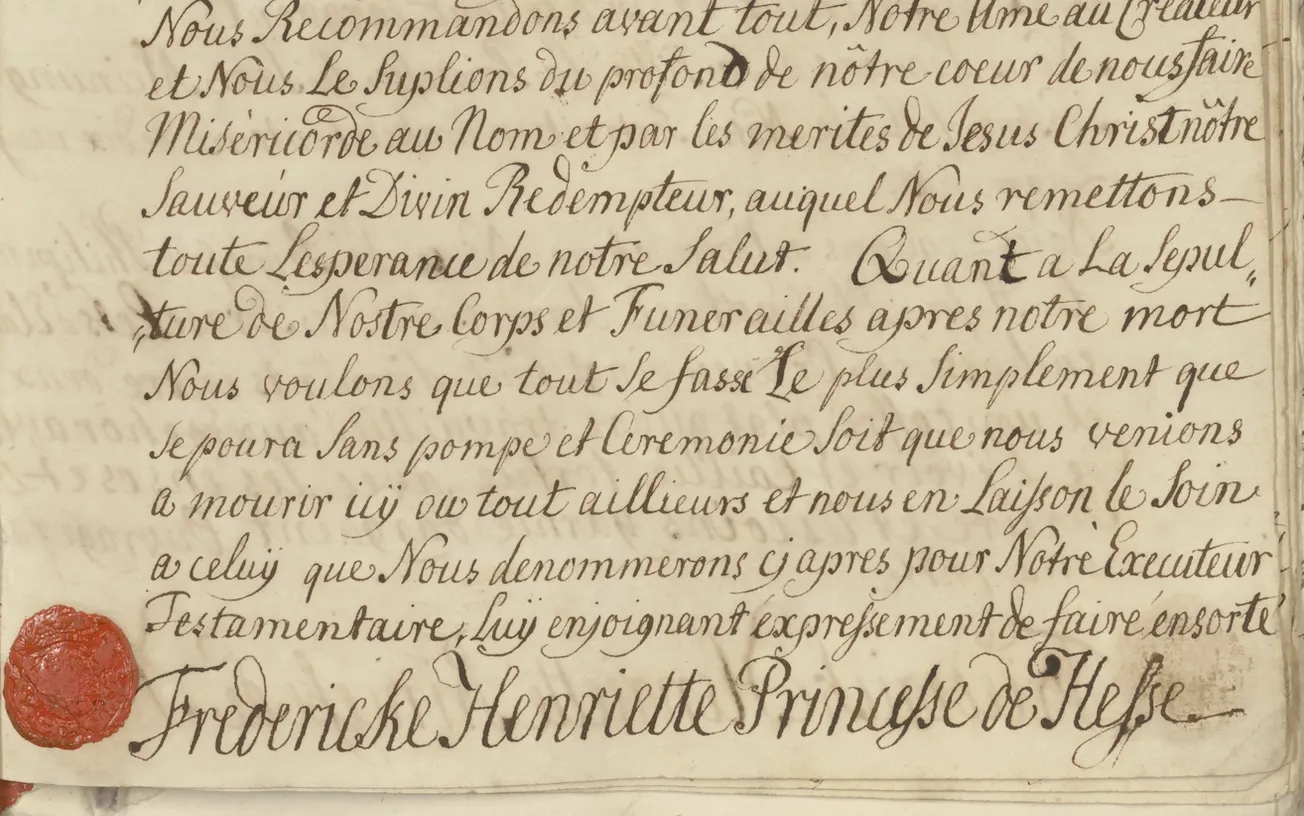 Nous Recommandons avant tout, Notre Ame au Créateur
et Nous Le Suplions du profond de nôtre coeur de nous faire
Miséricorde au Nom et par les merites de Jesus Christ nôtre
Sauveur et Divin Redempteur, auquel Nous remettons
toute Lesperance de notre Salut. Quant a La Sepul„
„ture de Nostre Corps et Funerailles apres notre mort
Nous voulons que tout Se fasse Le plus Simplement que
Se poura Sans pompe et Ceremonie Soit que nous venions
a mourir icÿ ou tout aillieurs et nous en Laisson le Soin
a celuÿ que Nous denommerons cj apres pour Notre Executeur
Testamentaire, Luÿ enjoignant expressement de faire ensorte
Fredericke Henriette Princesse de Hesse